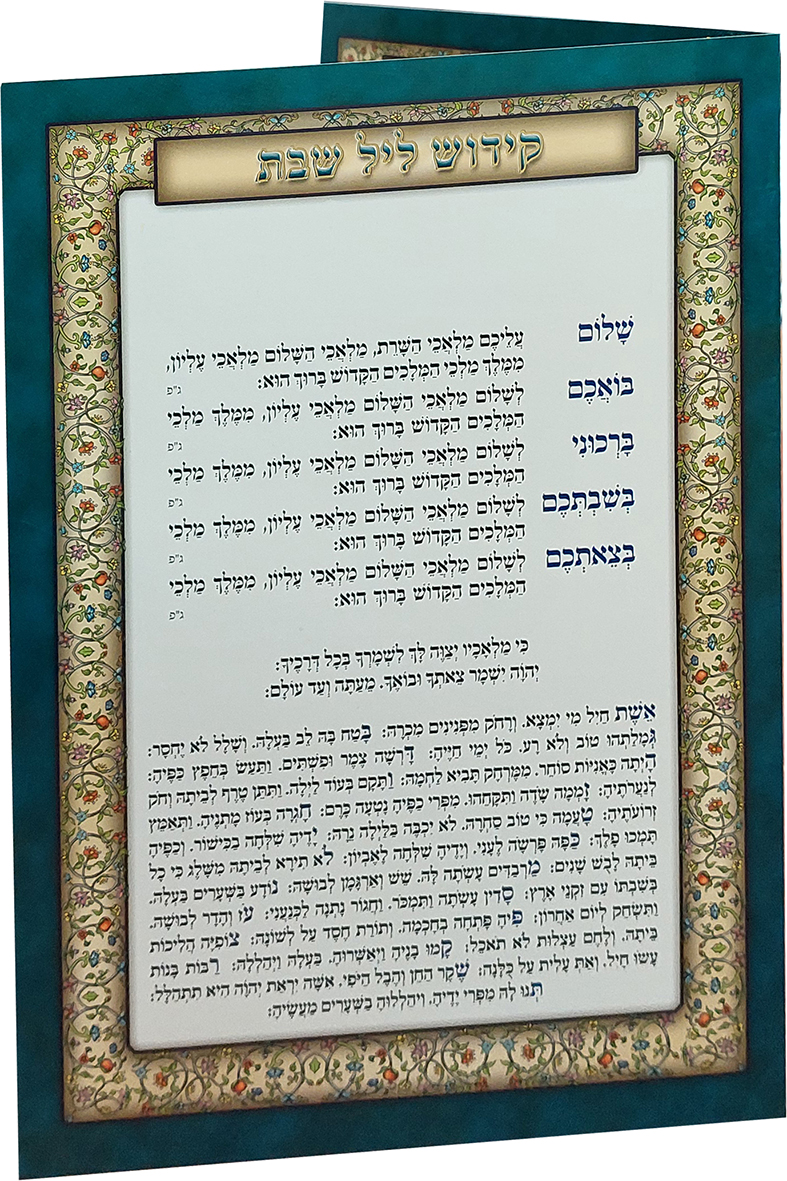 קידוש ליל שבת
שָׁלוֹם עֲלֵיכֶם מַלְאֲכֵי הַשָּׁרֵת, מַלְאֲכֵי הַשָּׁלוֹם מַלְאֲכֵי עֶלְיוֹן,
מִמֶּלֶךְ מַלְכֵי הַמְּלָכִים הַקָּדוֹשׁ בָּרוּךְ הוּא: ג"פ
בּוֹאֲכֶם לְשָׁלוֹם מַלְאֲכֵי הַשָּׁלוֹם מַלְאֲכֵי עֶלְיוֹן, מִמֶּלֶךְ מַלְכֵי
הַמְּלָכִים הַקָּדוֹשׁ בָּרוּךְ הוּא: ג"פ
בָּרְכוּנִי לְשָׁלוֹם מַלְאֲכֵי הַשָּׁלוֹם מַלְאֲכֵי עֶלְיוֹן, מִמֶּלֶךְ מַלְכֵי
הַמְּלָכִים הַקָּדוֹשׁ בָּרוּךְ הוּא: ג"פ
בְּשִׁבְתְּכֶם לְשָׁלוֹם מַלְאֲכֵי הַשָּׁלוֹם מַלְאֲכֵי עֶלְיוֹן, מִמֶּלֶךְ מַלְכֵי
הַמְּלָכִים הַקָּדוֹשׁ בָּרוּךְ הוּא: ג"פ
בְּצֵאתְכֶם לְשָׁלוֹם מַלְאֲכֵי הַשָּׁלוֹם מַלְאֲכֵי עֶלְיוֹן, מִמֶּלֶךְ מַלְכֵי
הַמְּלָכִים הַקָּדוֹשׁ בָּרוּךְ הוּא: ג"פ
כִּי מַלְאָכָיו יְצַוֶּה לָּךְ לִשְׁמָרְךָ בְּכָל דְּרָכֶיךָ:
יְהוָה יִשְׁמָר צֵאתְךָ וּבוֹאֶךָ. מֵעַתָּה וְעַד עוֹלָם:
אֵשֶׁת חַיִל מִי יִמְצָא. וְרָחֹק מִפְּנִינִים מִכְרָהּ: בָּטַח בָּהּ לֵב בַּעְלָהּ. וְשָׁלָל לֹא יֶחְסָר:
גְּמָלַתְהוּ טוֹב וְלֹא רָע. כֹּל יְמֵי חַיֶּיהָ: דָּרְשָׁה צֶמֶר וּפִשְׁתִּים. וַתַּעַשׂ בְּחֵפֶץ כַּפֶּיהָ:
הָיְתָה כָּאֳנִיּוֹת סוֹחֵר. מִמֶּרְחָק תָּבִיא לַחְמָהּ: וַתָּקָם בְּעוֹד לַיְלָה. וַתִּתֵּן טֶרֶף לְבֵיתָהּ וְחֹק
לְנַעֲרֹתֶיהָ: זָמְמָה שָׂדֶה וַתִּקָּחֵהוּ. מִפְּרִי כַפֶּיהָ נָטְעָה כָּרֶם: חָגְרָה בְּעוֹז מָתְנֶיהָ. וַתְּאַמֵּץ
זְרוֹעֹתֶיהָ: טָעֲמָה כִּי טוֹב סַחְרָהּ. לֹא יִכְבֶּה בַּלַּיְלָה נֵרָהּ: יָדֶיהָ שִׁלְּחָה בַכִּישׁוֹר. וְכַפֶּיהָ
תָּמְכוּ פָלֶךְ: כַּפָּהּ פָּרְשָׂה לֶעָנִי. וְיָדֶיהָ שִׁלְּחָה לָאֶבְיוֹן: לֹא תִירָא לְבֵיתָהּ מִשָּׁלֶג כִּי כָל
בֵּיתָהּ לָבֻשׁ שָׁנִים: מַרְבַדִּים עָשְׂתָה לָּהּ. שֵׁשׁ וְאַרְגָּמָן לְבוּשָׁהּ: נוֹדָע בַּשְּׁעָרִים בַּעְלָהּ.
בְּשִׁבְתּוֹ עִם זִקְנֵי אָרֶץ: סָדִין עָשְׂתָה וַתִּמְכֹּר. וַחֲגוֹר נָתְנָה לַכְּנַעֲנִי: עֹז וְהָדָר לְבוּשָׁהּ.
וַתִּשְׂחַק לְיוֹם אַחֲרוֹן: פִּיהָ פָּתְחָה בְחָכְמָה. וְתוֹרַת חֶסֶד עַל לְשׁוֹנָהּ: צוֹפִיָּה הֲלִיכוֹת
בֵּיתָהּ. וְלֶחֶם עַצְלוּת לֹא תֹאכֵל: קָמוּ בָנֶיהָ וַיְאַשְּׁרוּהָ. בַּעְלָהּ וַיְהַלְלָהּ: רַבּוֹת בָּנוֹת
עָשׂוּ חָיִל. וְאַתְּ עָלִית עַל כֻּלָּנָה: שֶׁקֶר הַחֵן וְהֶבֶל הַיֹּפִי. אִשָּׁה יִרְאַת יְהוָה הִיא תִתְהַלָּל:
תְּנוּ לָהּ מִפְּרִי יָדֶיהָ. וִיהַלְלוּהָ בַשְּׁעָרִים מַעֲשֶׂיהָ: